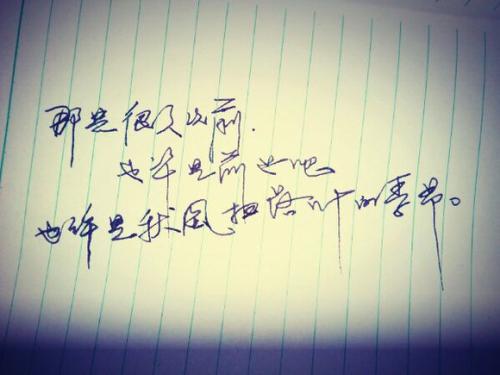 那是很久以前.
也许是前世吧
也许是秋风扫落叶的季节。